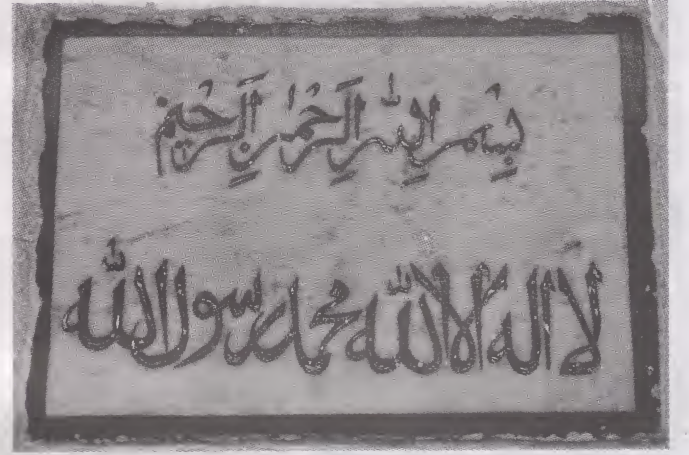 بِسْمِ اللّٰهِ الرَّحْمٰنِ الرَّحِيْمِ
لا اله الا اللّٰه محمد رسول اللّٰه